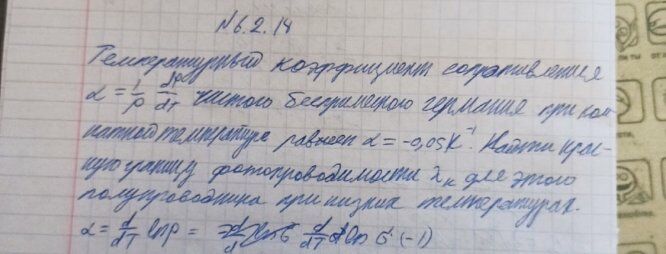 №6.2.18
Температурный коэффициент сопротивления
α = 1/ρ dρ/dT чистого беспримесного германия при ком
натной температуре равен α = -0,05K⁻¹. Найти крас
ную границу фотопроводимости λк для этого
полупроводника при низких температурах.
α = d/dT lnρ = d/dT ln σ (-1)